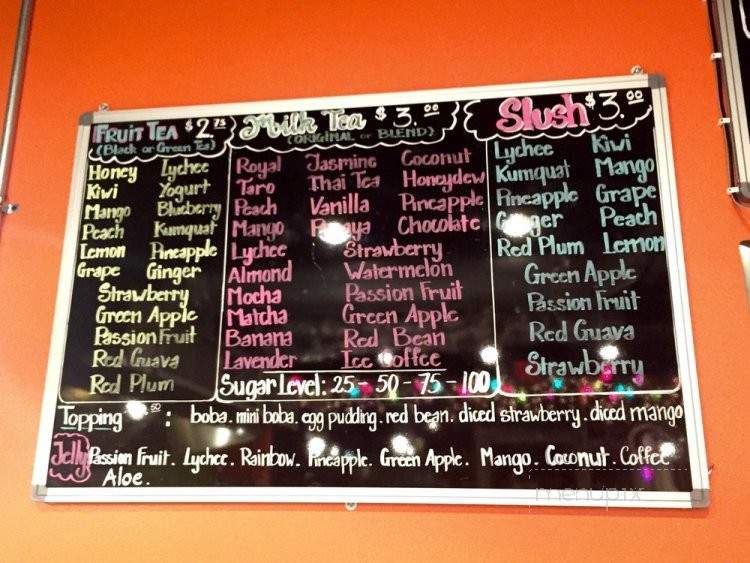 FRUIT TEA $2.75
(Black or Green Tea)
Honey Lychee
Kiwi Yogurt
Mango Blueberry
Peach Kumquat
Lemon Pineapple
Grape Ginger
Strawberry
Green Apple
Passion Fruit
Red Guava
Red Plum
Milk Tea $3.00
(ORIGINAL or BLEND)
Royal Jasmine Coconut
Taro Thai Tea Honeydew
Peach Vanilla Pineapple
Mango Chocolate
Lychee Strawberry
Almond Watermelon
Mocha Passion Fruit
Matcha Green Apple
Banana Red Bean
Lavender Ice Coffee
Sugar Level: 25 - 50 - 75 - 100
Slush $3.00
Lychee Kiwi
Kumquat Mango
Pineapple Grape
Ginger Peach
Red Plum Lemon
Green Apple
Passion Fruit
Red Guava
Strawberry
Topping .50 : boba. mini boba. egg pudding. red bean. diced strawberry. diced mango
Jelly Passion Fruit. Lychee. Rainbow. Pineapple. Green Apple. Mango. Coconut. Coffee
Aloe.
menupix